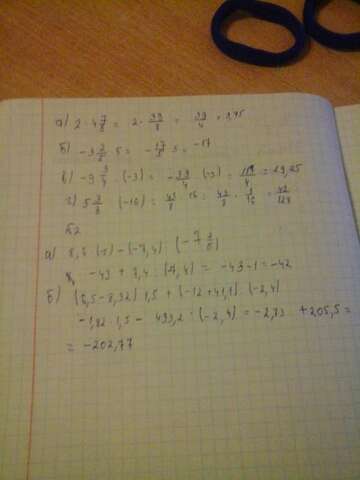 а) 2 · 4 7/8 = 2 · 39/8 = 39/4 = 9,75
б) -3 2/5 · 5 = -17/5 · 5 = -17
в) -9 3/4 · (-3) = -39/4 · (-3) = 117/4 = 29,25
г) 5 3/8 : (-16) = 43/8 : 16 = 43/8 · 1/16 = 43/128
№2
а) 8,6 · (-5) - (-7,4) : (-7 2/5)
-43 + 7,4 : (-7,4) = -43-1 = -42
б) (6,5-8,32) · 1,5 + (-12 · 41,1) : (-2,4)
-1,82 · 1,5 - 493,2 : (-2,4) = -2,73 + 205,5 =
= -202,77